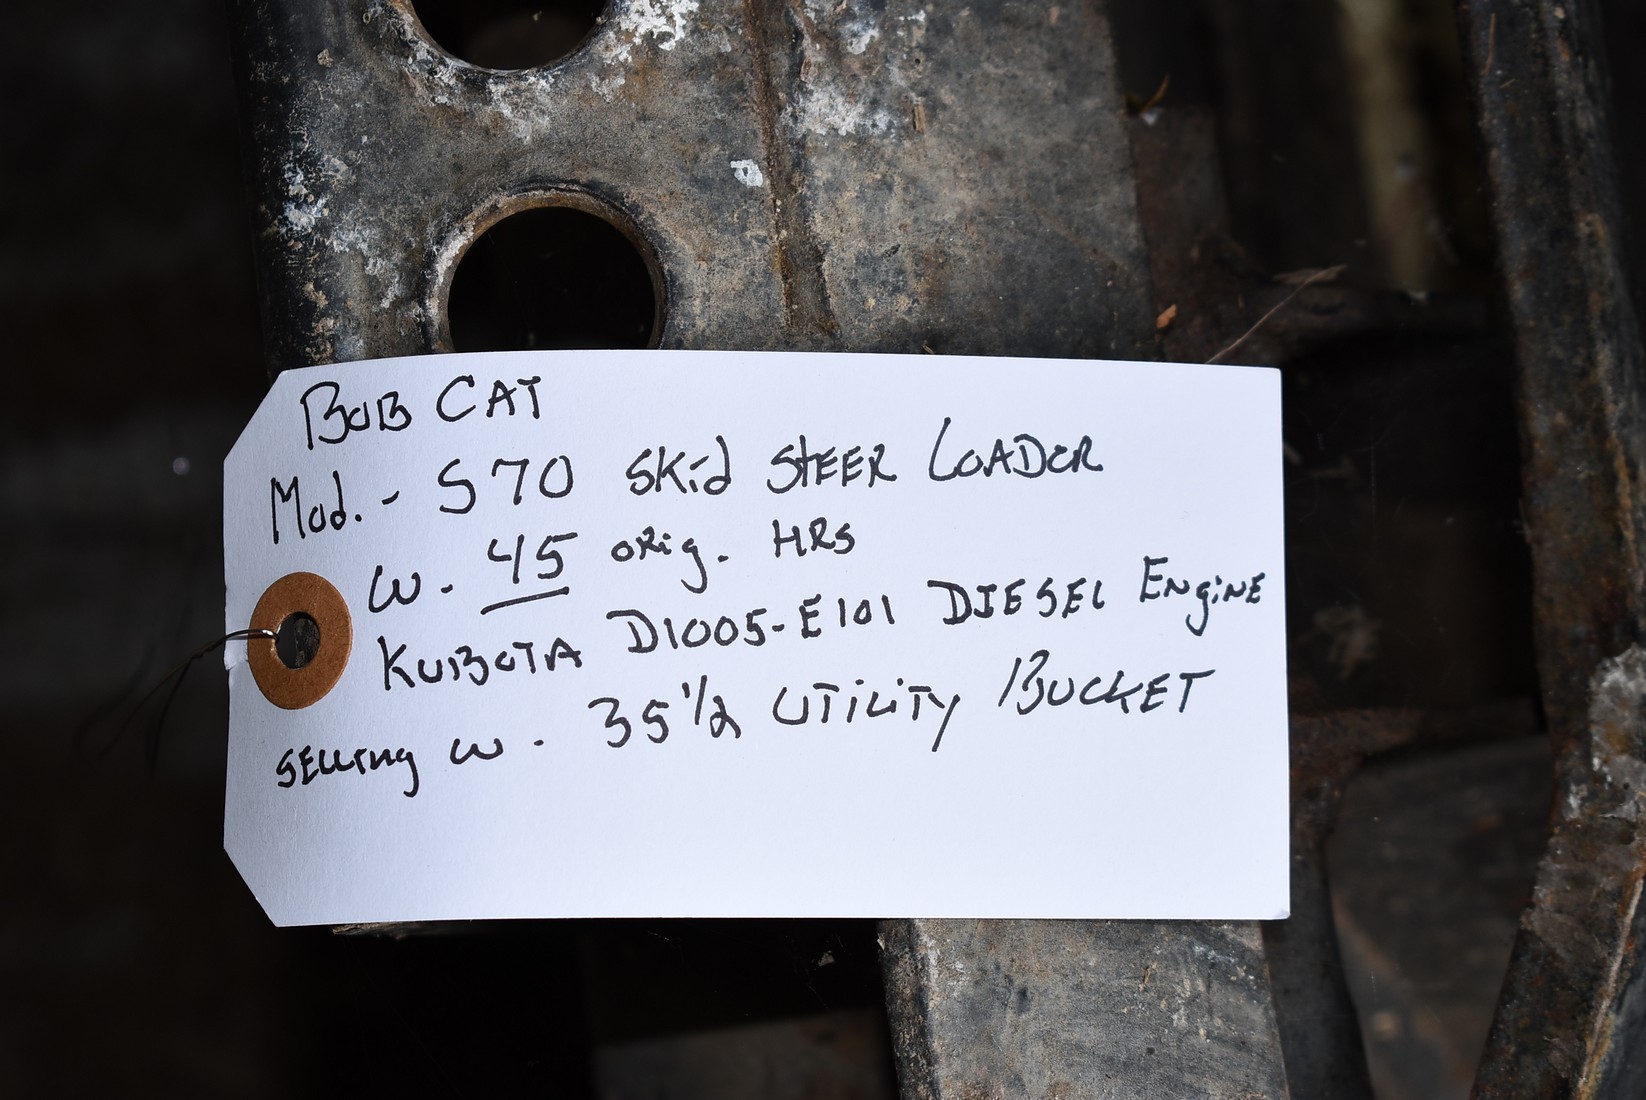 BOB CAT
Mod. - S70 Skid STEER LOADER
W. 45 orig. HRS
KUBOTA D1005-E101 DIESEL Engine
SELLING W. 35 1/2 UTILITY BUCKET